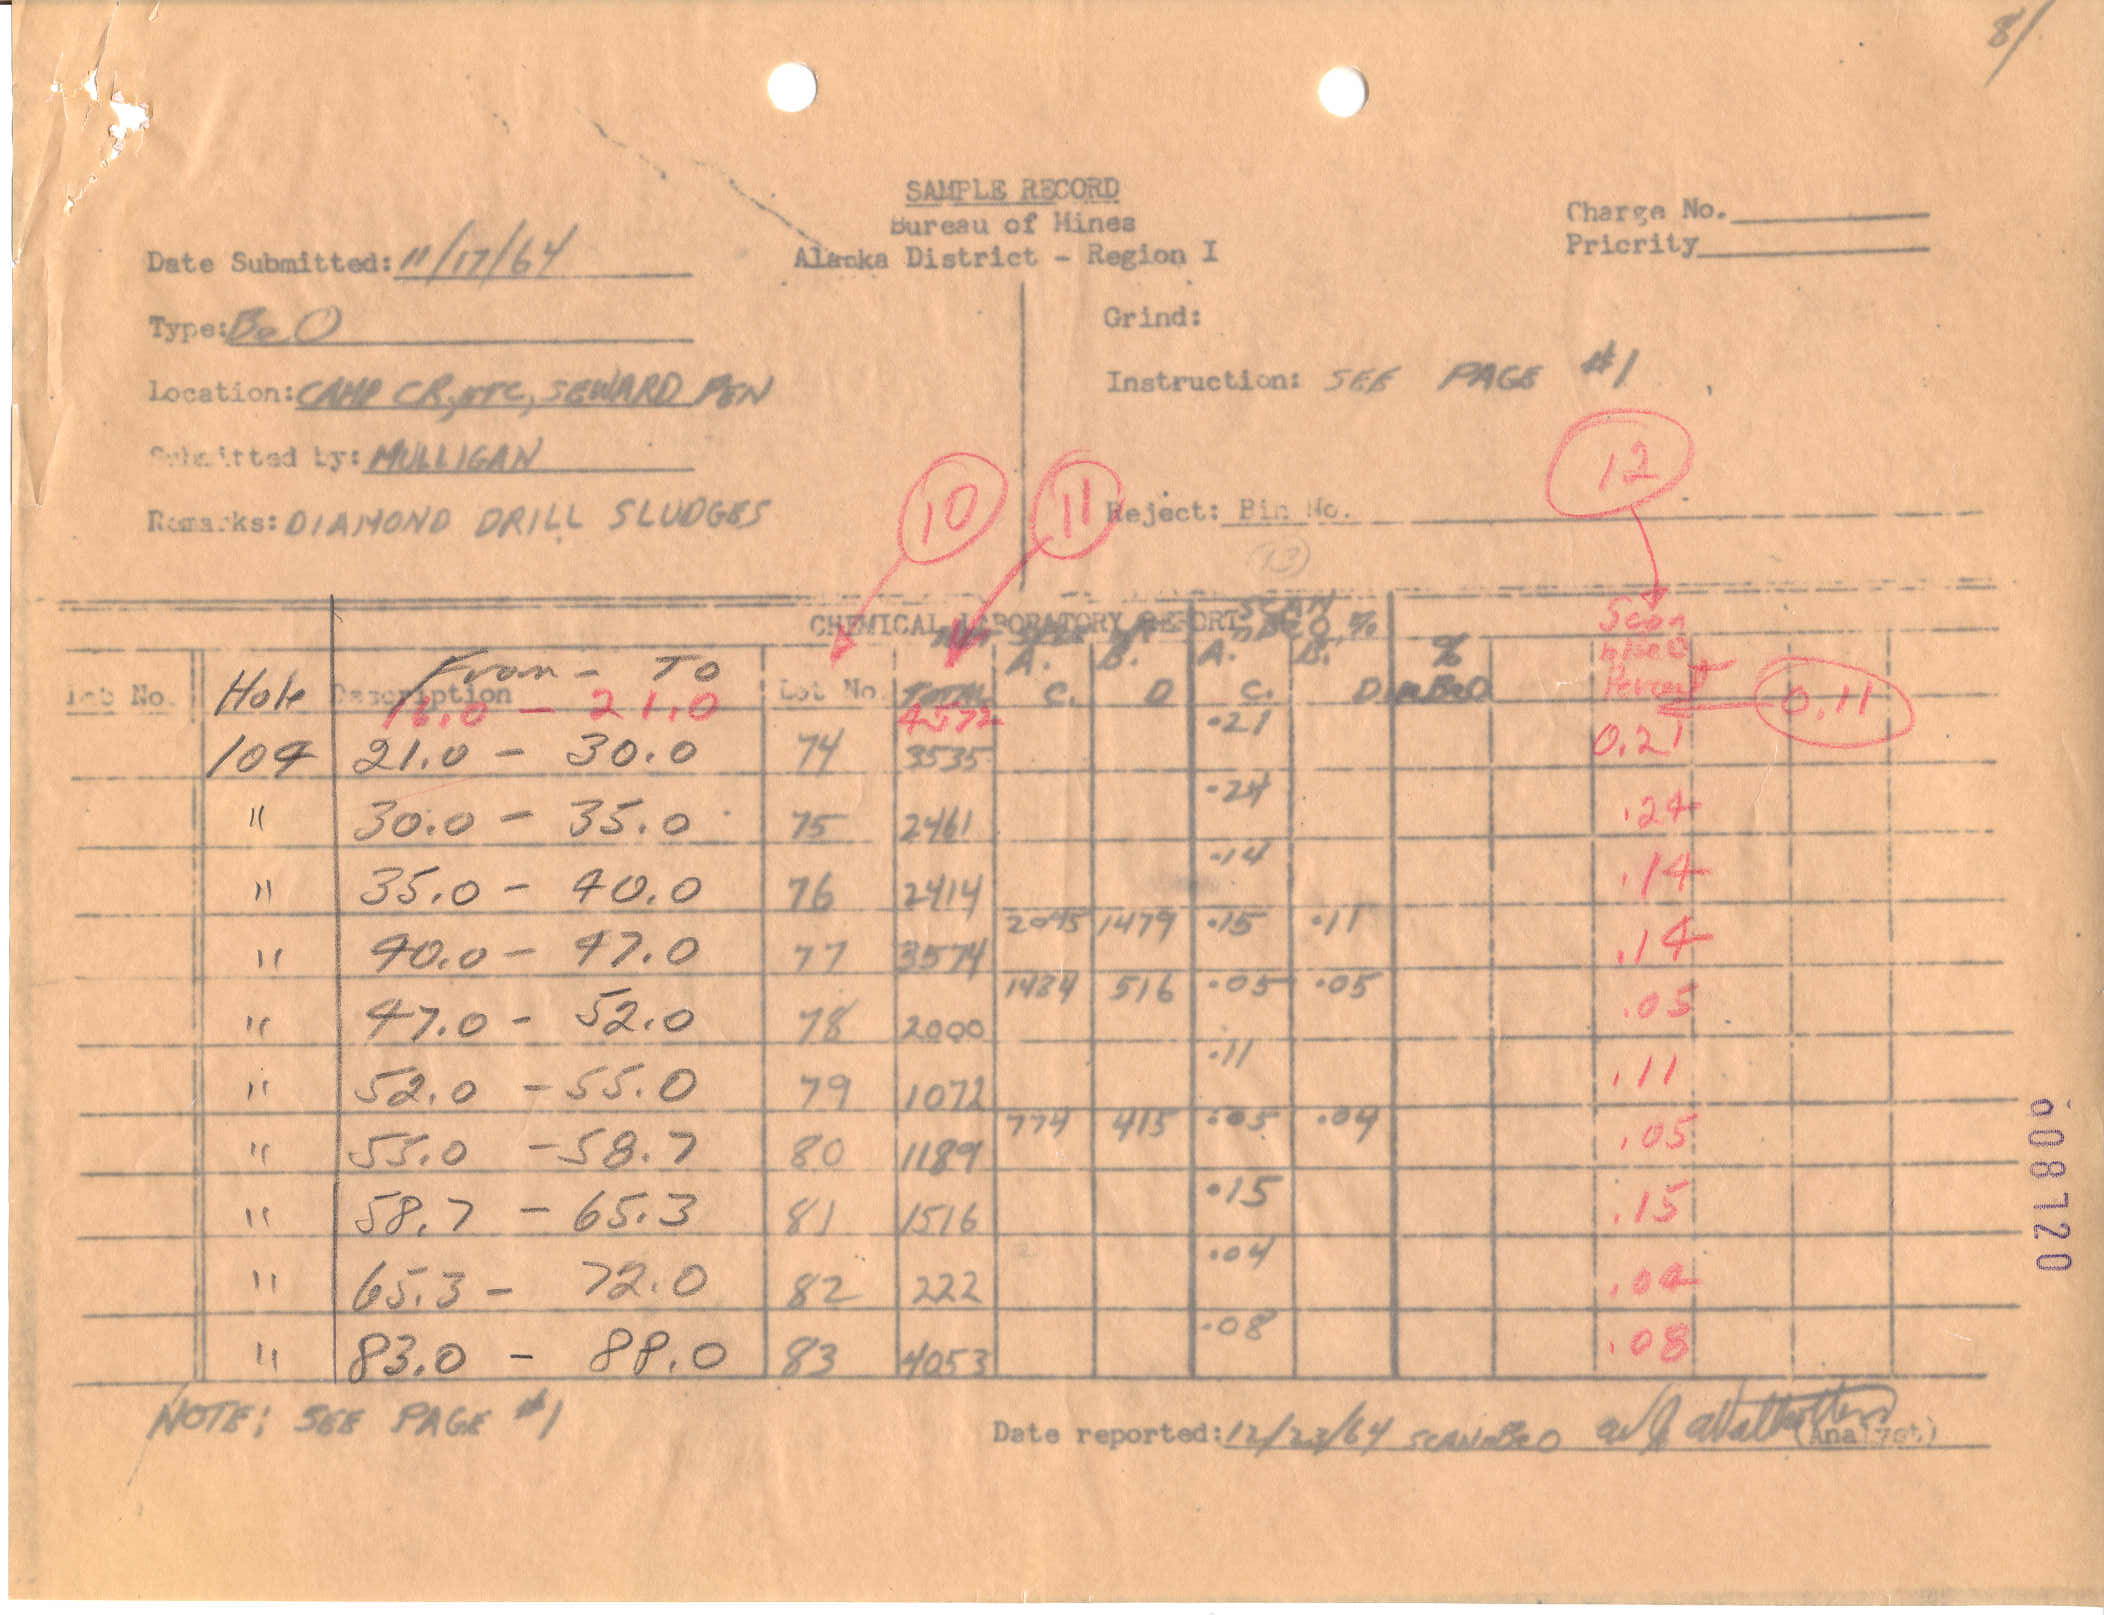 8/
SAMPLE RECORD
Bureau of Mines
Alaska District - Region I
Charge No.
Priority
Date Submitted: 11/17/64
Type: BeO
Location: CAMP CR, ETC, SEWARD PEN
Submitted by: MULLIGAN
Remarks: DIAMOND DRILL SLUDGES
Grind:
Instruction: SEE PAGE #1
Reject: Bin No.
10
11
12
(13)
CHEMICAL LABORATORY REPORT
SCAN
A. B. A. B. %
Scan
Percent
Lab No. Hole Description From - To Lot No. TOTAL C. D C. D. BeO
16.0 - 21.0 4572 0.11
104 21.0 - 30.0 74 3535 .21 0.21
" 30.0 - 35.0 75 2461 .24 .24
" 35.0 - 40.0 76 2414 .14 .14
" 40.0 - 47.0 77 3574 2095 1479 .15 .11 .14
" 47.0 - 52.0 78 2000 1484 516 .05 .05 .05
" 52.0 - 55.0 79 1072 .11 .11
" 55.0 - 58.7 80 1189 774 415 .05 .04 .05
" 58.7 - 65.3 81 1516 .15 .15
" 65.3 - 72.0 82 222 .04 .04
" 83.0 - 88.0 83 4053 .08 .08
NOTE; SEE PAGE #1
Date reported: 12/23/64 SCAN BeO (Analyst)
008720